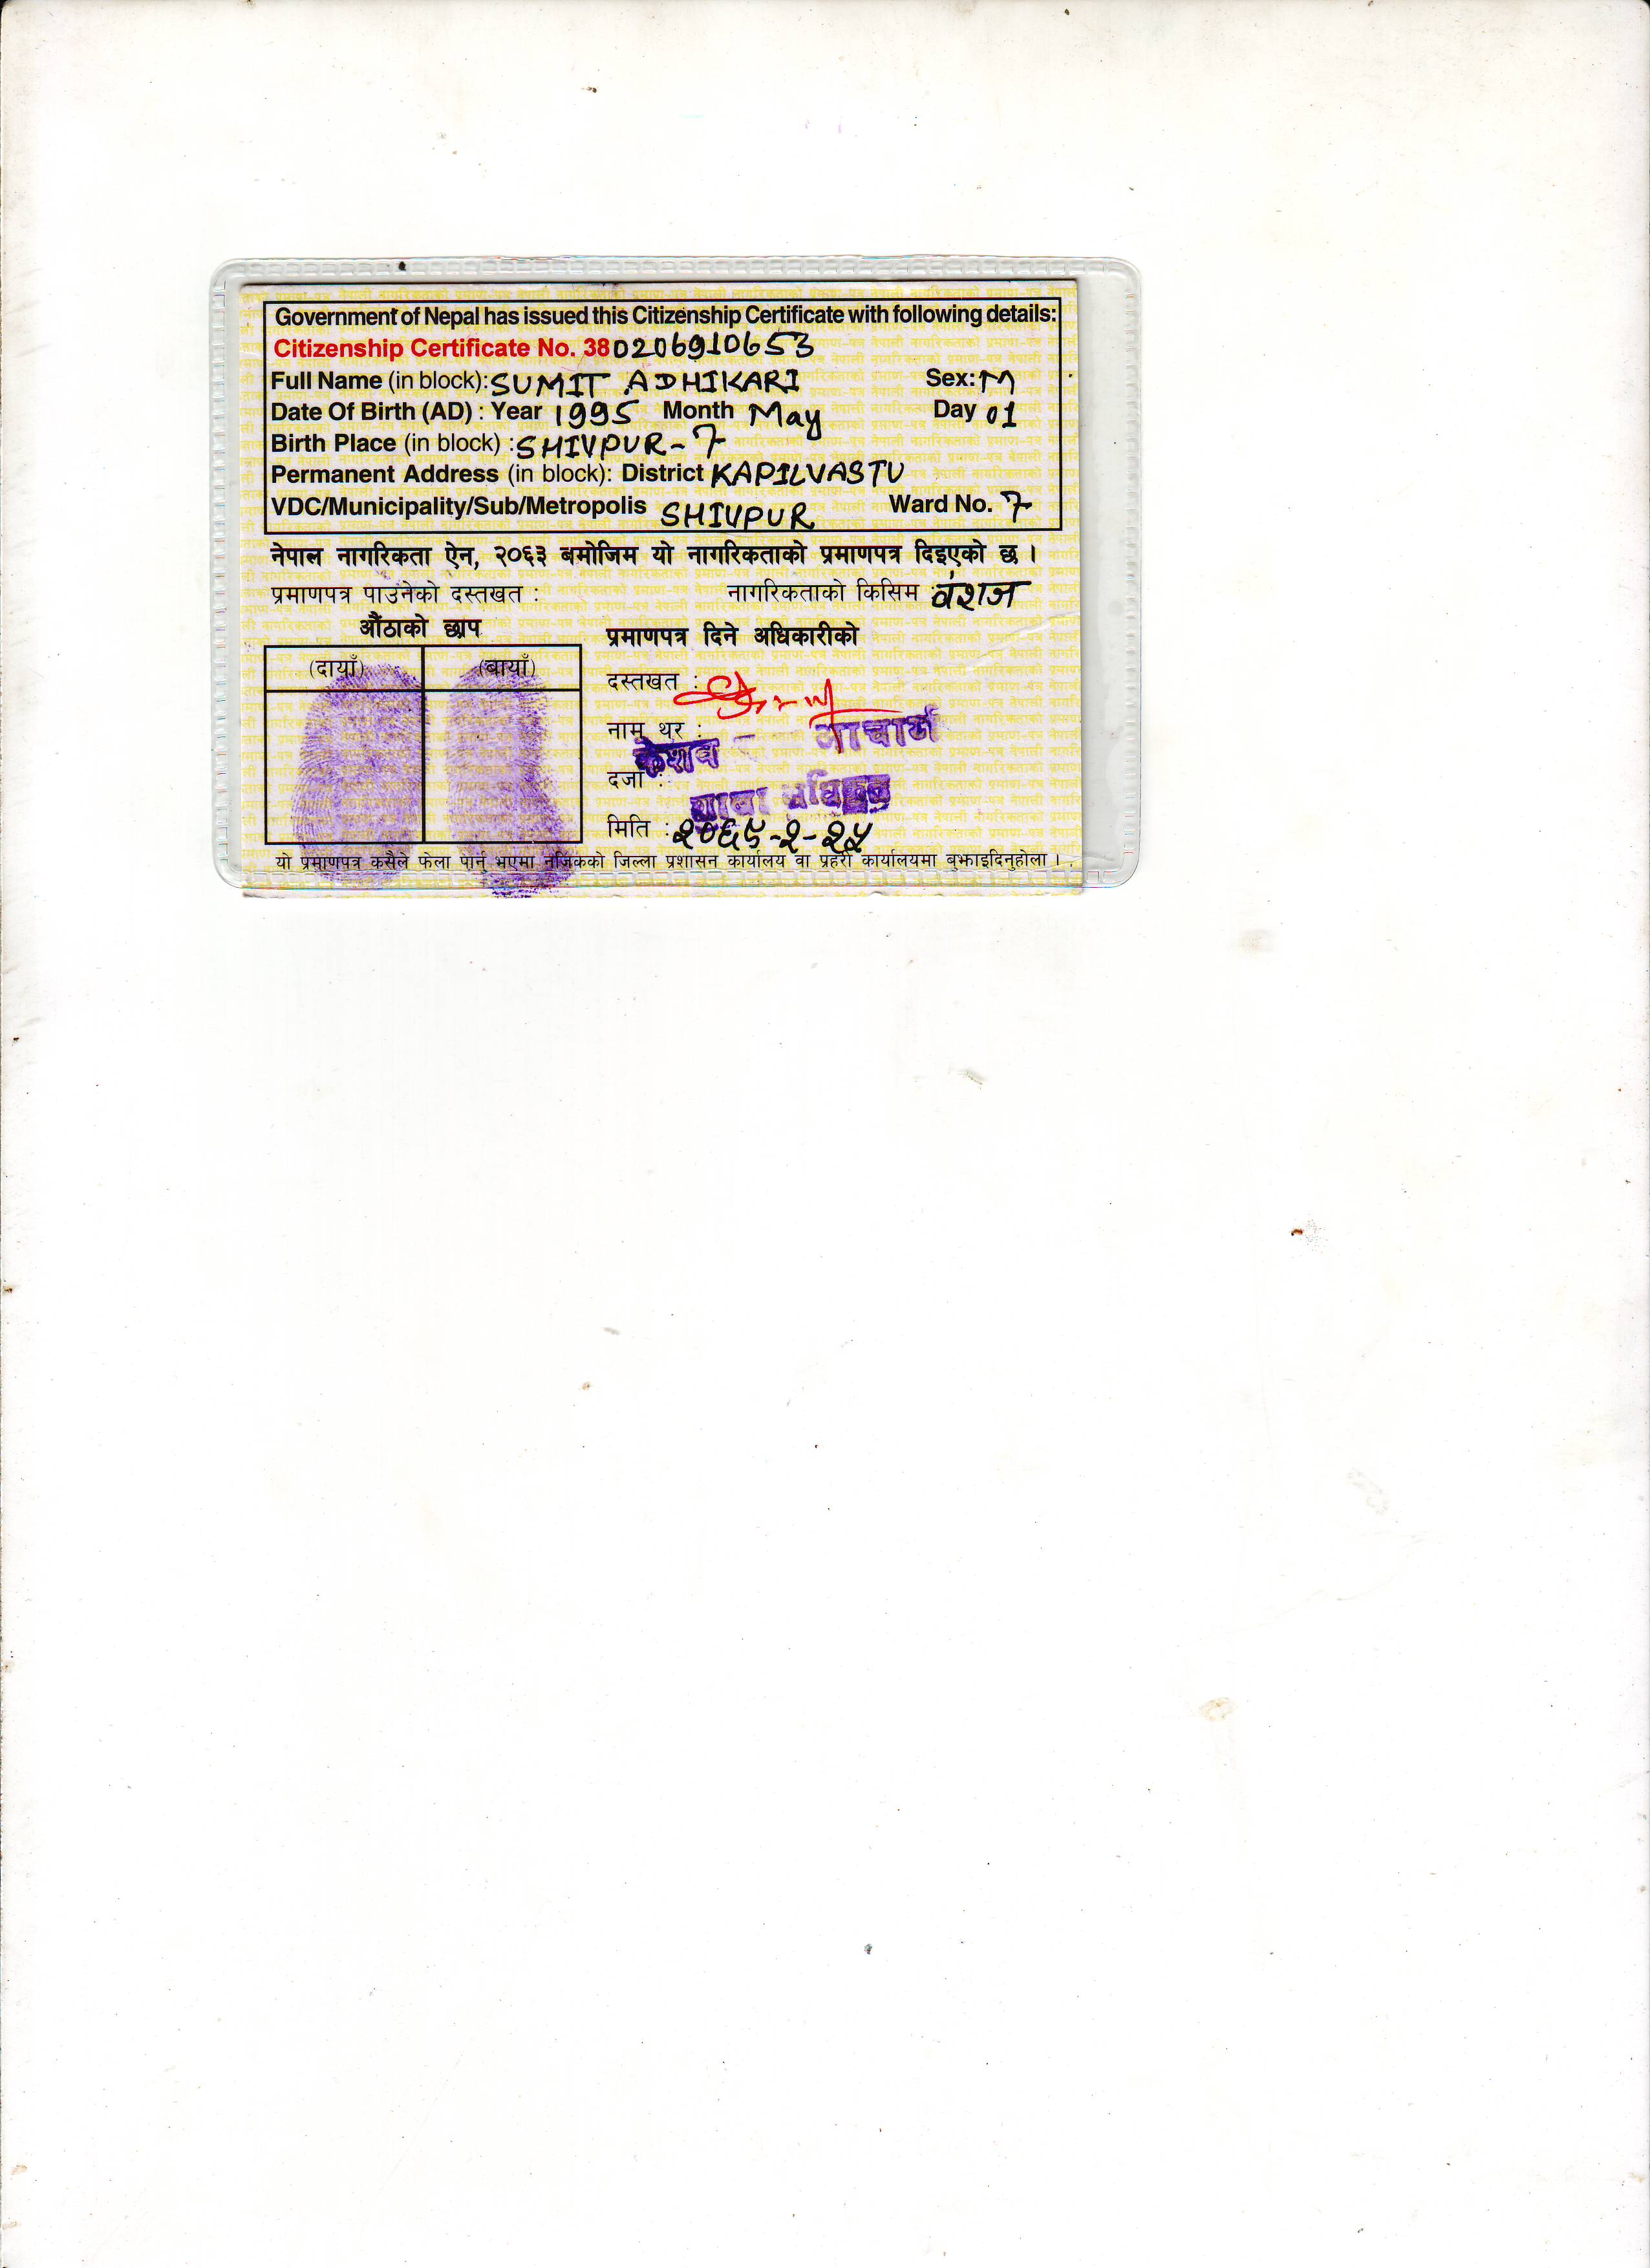 Government of Nepal has issued this Citizenship Certificate with following details:
Citizenship Certificate No. 380206910653
Full Name (in block): SUMIT ADHIKARI Sex: M
Date Of Birth (AD) : Year 1995 Month May Day 01
Birth Place (in block) : SHIVPUR-7
Permanent Address (in block): District KAPILVASTU
VDC/Municipality/Sub/Metropolis SHIVPUR Ward No. 7
नेपाल नागरिकता ऐन, २०६३ बमोजिम यो नागरिकताको प्रमाणपत्र दिइएको छ ।
प्रमाणपत्र पाउनेको दस्तखत : नागरिकताको किसिम : वंशज
औंठाको छाप प्रमाणपत्र दिने अधिकारीको
(दायाँ) (बायाँ)
दस्तखत :
नाम थर : केशव आचार्य
दर्जा : शाखा अधिकृत
मिति : २०६९-२-२५
यो प्रमाणपत्र कसैले फेला पार्नु भएमा नजिकको जिल्ला प्रशासन कार्यालय वा प्रहरी कार्यालयमा बुझाइदिनुहोला ।